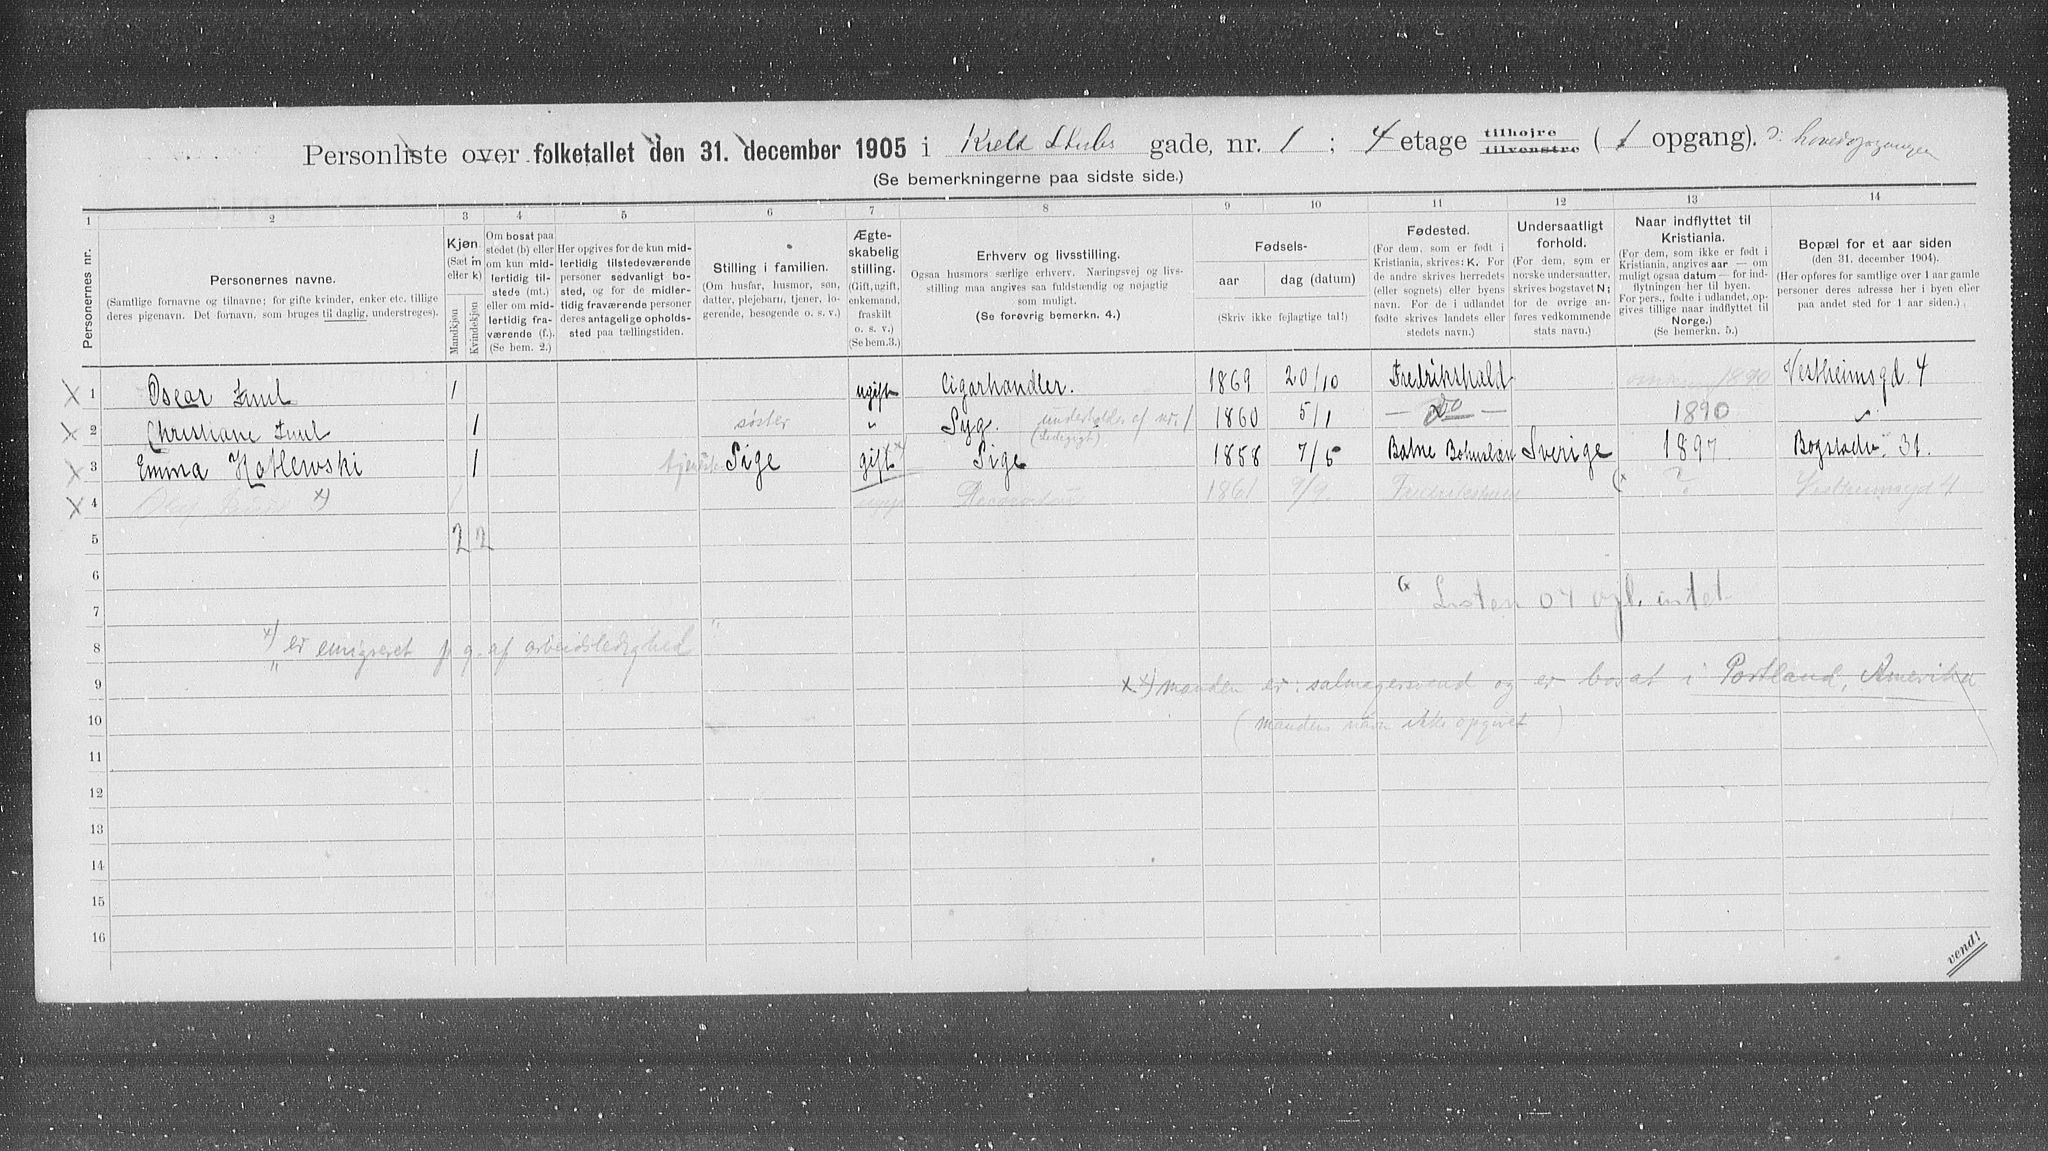 Personliste over folketallet den 31. december 1905 i Kield Stubs gade, nr. 1 ; 4 etage tilhøjre tilvenstre ( 1 opgang). i hovedopgangen
(Se bemerkningerne paa sidste side.)
1 2 3 4 5 6 7 8 9 10 11 12 13 14
Personernes nr.
Personernes navne.
(Samtlige fornavne og tilnavne; for gifte kvinder, enker etc. tillige
deres pigenavn. Det fornavn, som bruges til daglig, understreges).
Kjøn.
(Sæt m
eller k)
Mandkjøn
Kvindekjøn
Om bosat paa
stedet (b) eller
om kun mid-
lertidig til-
stede (mt.)
eller om mid-
lertidig fra-
værende (f.).
(Se bem. 2.)
Her opgives for de kun mid-
lertidig tilstedeværende
personer sedvanligt bo-
sted, og for de midler-
tidig fraværende personer
deres antagelige opholds-
sted paa tællingstiden.
Stilling i familien.
(Om husfar, husmor, søn,
datter, plejebarn, tjener, lo-
gerende, besøgende o. s. v.)
Ægte-
skabelig
stilling.
(Gift, ugift,
enkemand,
fraskilt
o. s. v.)
(Se bem.3.)
Erhverv og livsstilling.
Ogsaa husmors særlige erhverv. Næringsvej og livs-
stilling maa angives saa fuldstændig og nøjagtig
som muligt.
(Se forøvrig bemerkn. 4.)
Fødsels-
aar dag (datum)
(Skriv ikke fejlagtige tal!)
Fødested.
(For dem, som er født i
Kristiania, skrives: K. For
de andre skrives herredets
(eller sognets) eller byens
navn. For de i udlandet
fødte skrives landets eller
stedets navn.)
Undersaatligt
forhold.
(For dem, som er
norske undersaatter,
skrives bogstavet N;
for de øvrige an-
føres vedkommende
stats navn.)
Naar indflyttet til
Kristiania.
(For dem, som ikke er født i
Kristiania, angives aar — om
mulig ogsaa datum — for ind-
flytningen her til byen.
For pers., fødte i udlandet, op-
gives tillige naar indflyttet til
Norge.)
(Se bemerkn. 5.)
Bopæl for et aar siden
(den 31. december 1904).
(Her opføres for samtlige over 1 aar gamle
personer deres adresse her i byen eller
paa andet sted for 1 aar siden.)
1 Oscar 1 ugift Cigarhandler. 1869 20/10 Fredrikshald 1890 Vestheimsgd. 4
2 Christiane 1 søster " Syg. underholdes af nr. 1 1860 5/1 — do — 1890 "
3 Emma Kotlewski 1 Pige gift Pige 1858 7/5 Bohuslæn Sverige 1897 Bogstadv. 31.
4 x) 1 1861 9/9. (x ? Vestheimsgd 4
5 2 2
6
(x Listen 04 opl. intet
7
8 x) er emigreret p. g. af arbeidsledighed
9 xx) manden er salmagersvend og er bosat i Portland, Amerika
10 (mandens navn ikke opgivet)
11
12
13
14
15
16
vend!